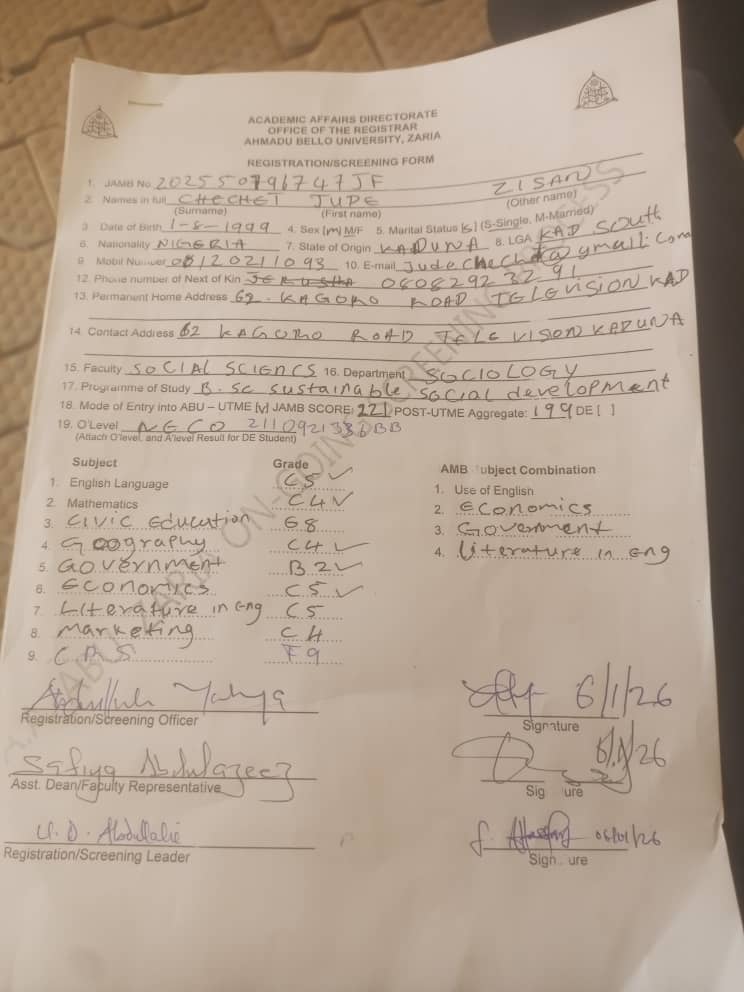 ACADEMIC AFFAIRS DIRECTORATE
OFFICE OF THE REGISTRAR
AHMADU BELLO UNIVERSITY, ZARIA
REGISTRATION/SCREENING FORM
1. JAMB No. 202550796747JF
2. Names in full CHECHET JUDE ZISAN
(Surname) (First name) (Other name)
3. Date of Birth 1-8-1999 4. Sex [m] M/F 5. Marital Status [S] (S-Single, M-Married)
6. Nationality NIGERIA 7. State of Origin KADUNA 8. LGA KAD South
9. Mobil Number 08120211093 10. E-mail
12. Phone number of Next of Kin 0808292 32 91
13. Permanent Home Address 62. KAGORO ROAD TELEVISION KAD
14. Contact Address 62 KAGORO ROAD TELEVISION KADUNA
15. Faculty SOCIAL SCIENCS 16. Department SOCIOLOGY
17. Programme of Study B.sc sustainable social development
18. Mode of Entry into ABU – UTME [v] JAMB SCORE: 221 POST-UTME Aggregate: 199 DE [ ]
19. O'Level NECO
(Attach O'level, and A'level Result for DE Student)
Subject Grade AMB Subject Combination
1. English Language C5 ✓ 1. Use of English
2. Mathematics C4 ✓ 2. Economics
3. CIVIC Education E8 3. Government
4. Geography C4 ✓ 4. literature in eng
5. Government B2 ✓
6. Economics C5 ✓
7. Literature in eng C5
8. marketing C4
9. C.R.S F9
Abdullahi Yahya 6/1/26
Registration/Screening Officer Signature
Safiya Abdulazeez 6/1/26
Asst. Dean/Faculty Representative Sig ure
U. D. Abdullahi 06/01/26
Registration/Screening Leader Sign ure
ABU ZARIA ON-GOING SCREENING PROCESS